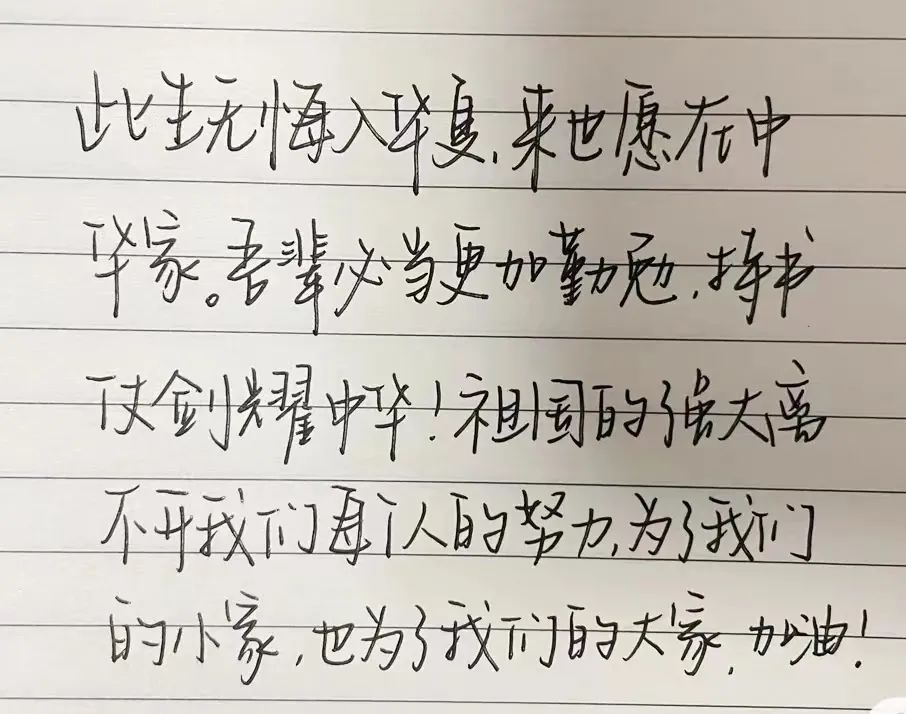 此生无悔入华夏,来世愿在中
华家。吾辈必当更加勤勉,持书
仗剑耀中华!祖国的强大离
不开我们每个人的努力,为了我们
的小家,也为了我们的大家,加油!